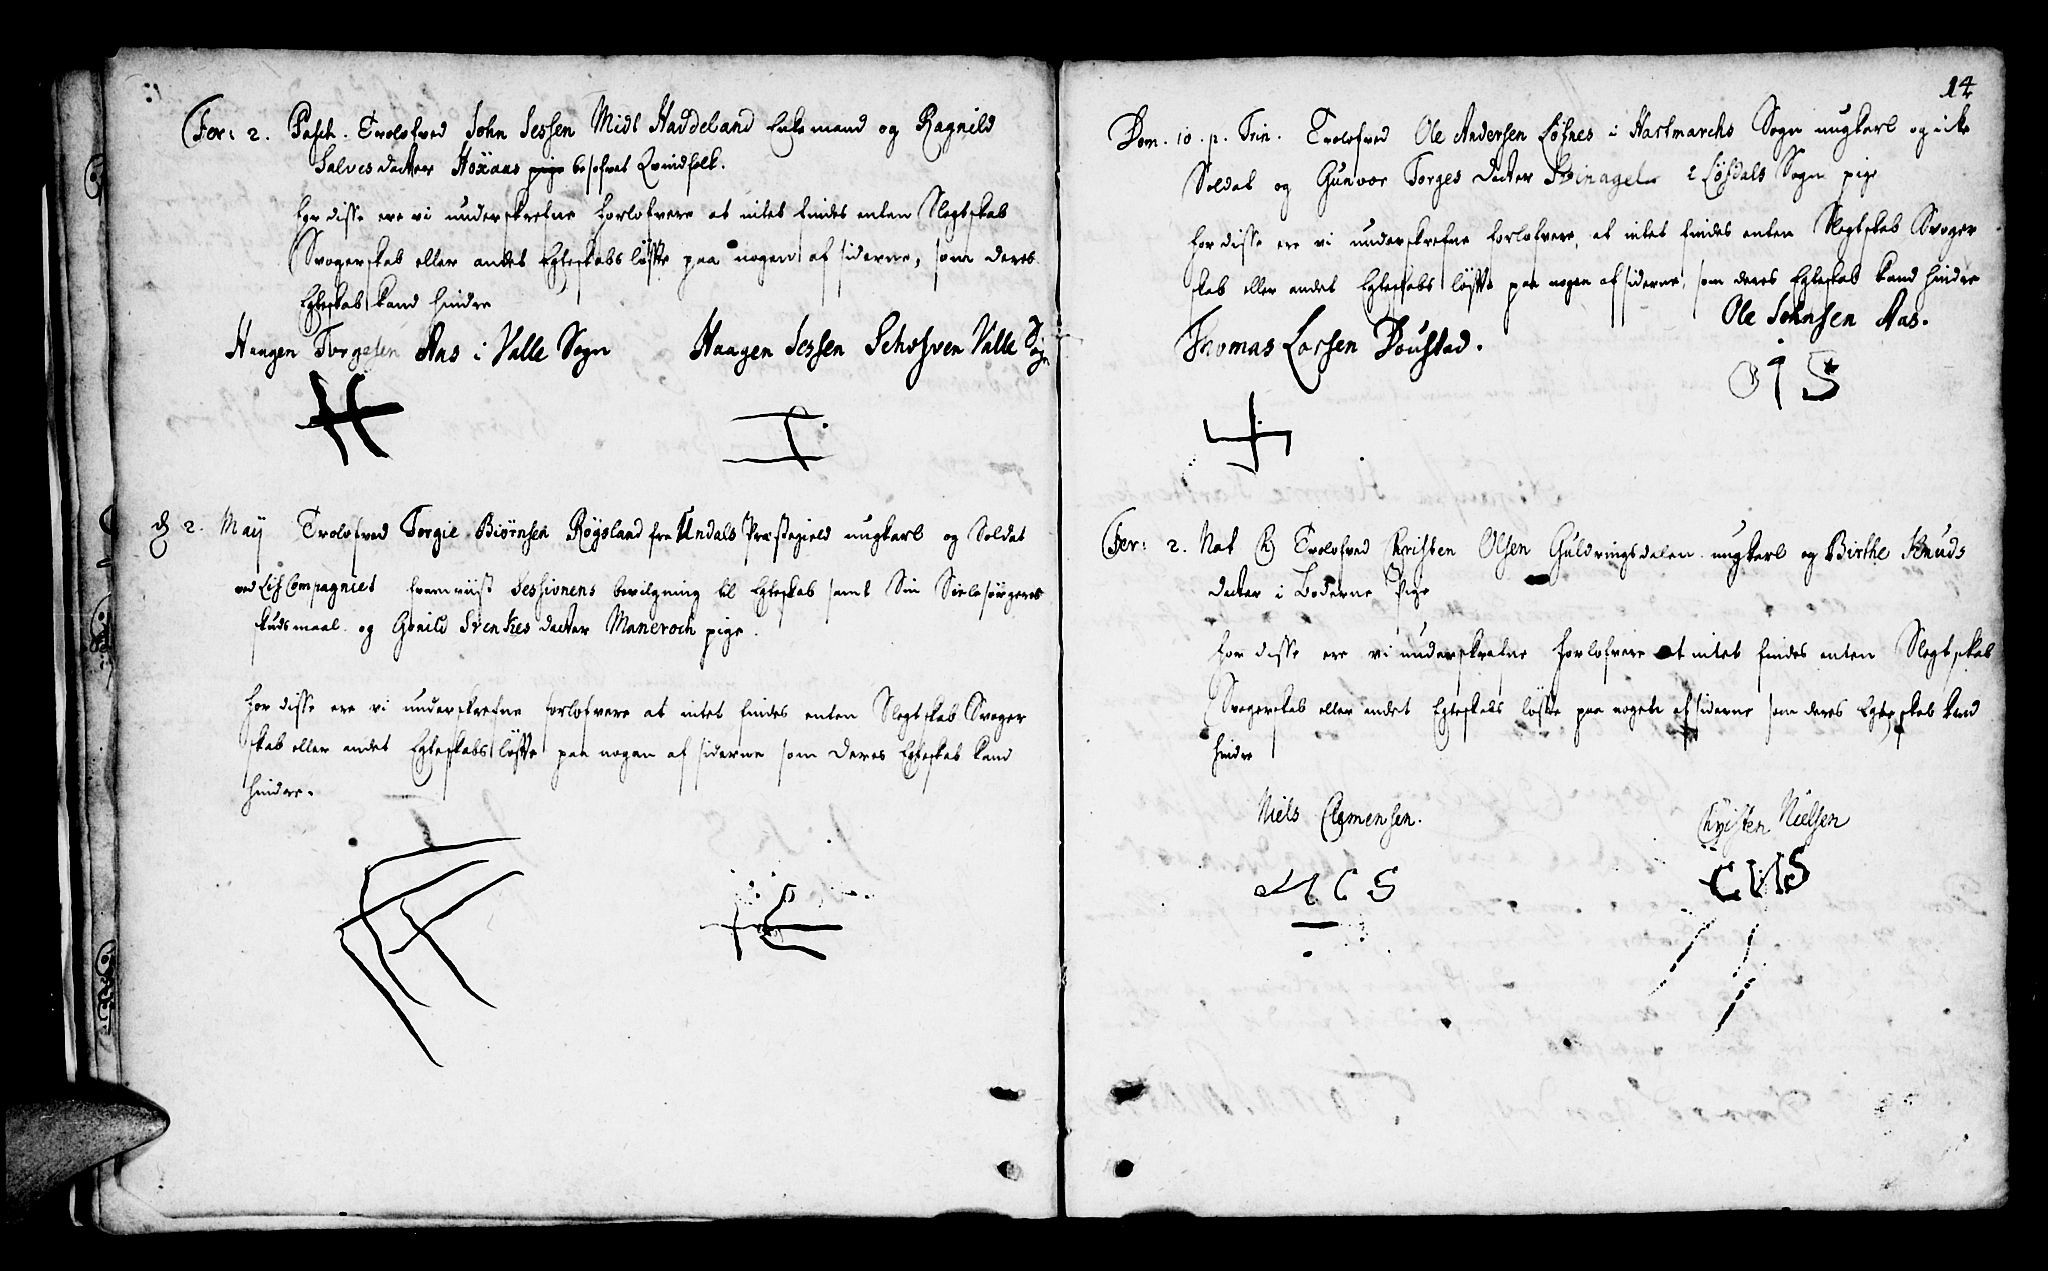 Fer: 2. Pasch. Trolofved John Jessen Midl Haddeland Enkemand og Ragnild
Salvesdatter Höxaas pige besofvet Qvindfolk.
For disse ere vi underskrefne forlofvere at intet findes enten Slegtskab
Svogerskab eller andet Egteskabs löfte paa nogen af siderne, som deres
Egteskab kand hindre
Haagen Torgesen Aas i Valle Sogn Haagen Jessen Valle Sogn
H
d 2. Maij Trolofved Torgie Biörnsen Röysland fra Undals Præstegield ungkarl og Soldat
ved Lif Compagniet fremviist Sessionens bevilgning til Egteskab samt Sin Sielesörgeres
skudsmaal og Gunild Svenkes datter Maneroch pige.
For disse ere vi underskrefne forlofvere at intet findes enten Slegtskab Svoger
skab eller andet Egteskabs löfte paa nogen af siderne som deres Egteskab kand
hindre.
14
Dom. 10. p. Trin. Trolofved Ole Andersen Löfnes i Hartmarchs Sogn ungkarl og icke
Soldat og Gunvor Torges datter i Löfdals Sogn pige
For disse ere vi underskrefne forlofvere, at intet findes enten Slegtskab Svoger
skab eller andet Egteskabs löfte paa nogen af siderne, som deres Egteskab kand hindre
Ole Johnsen Aas.
Thomas Larsen Doustad.
OIS
Fer: 2. Nat Trolofved Christen Olsen Guldringsdalen ungkarl og Birthe Knuds
datter i Boderne Pige
For disse ere vi underskrefne forlofvere at intet findes enten Slegtskab
Svogerskab eller andet Egteskabs löfte paa nogen af siderne som deres Egteskab kand
hindre
Niels Clemensen. Christen Nielsen
NCS CNS